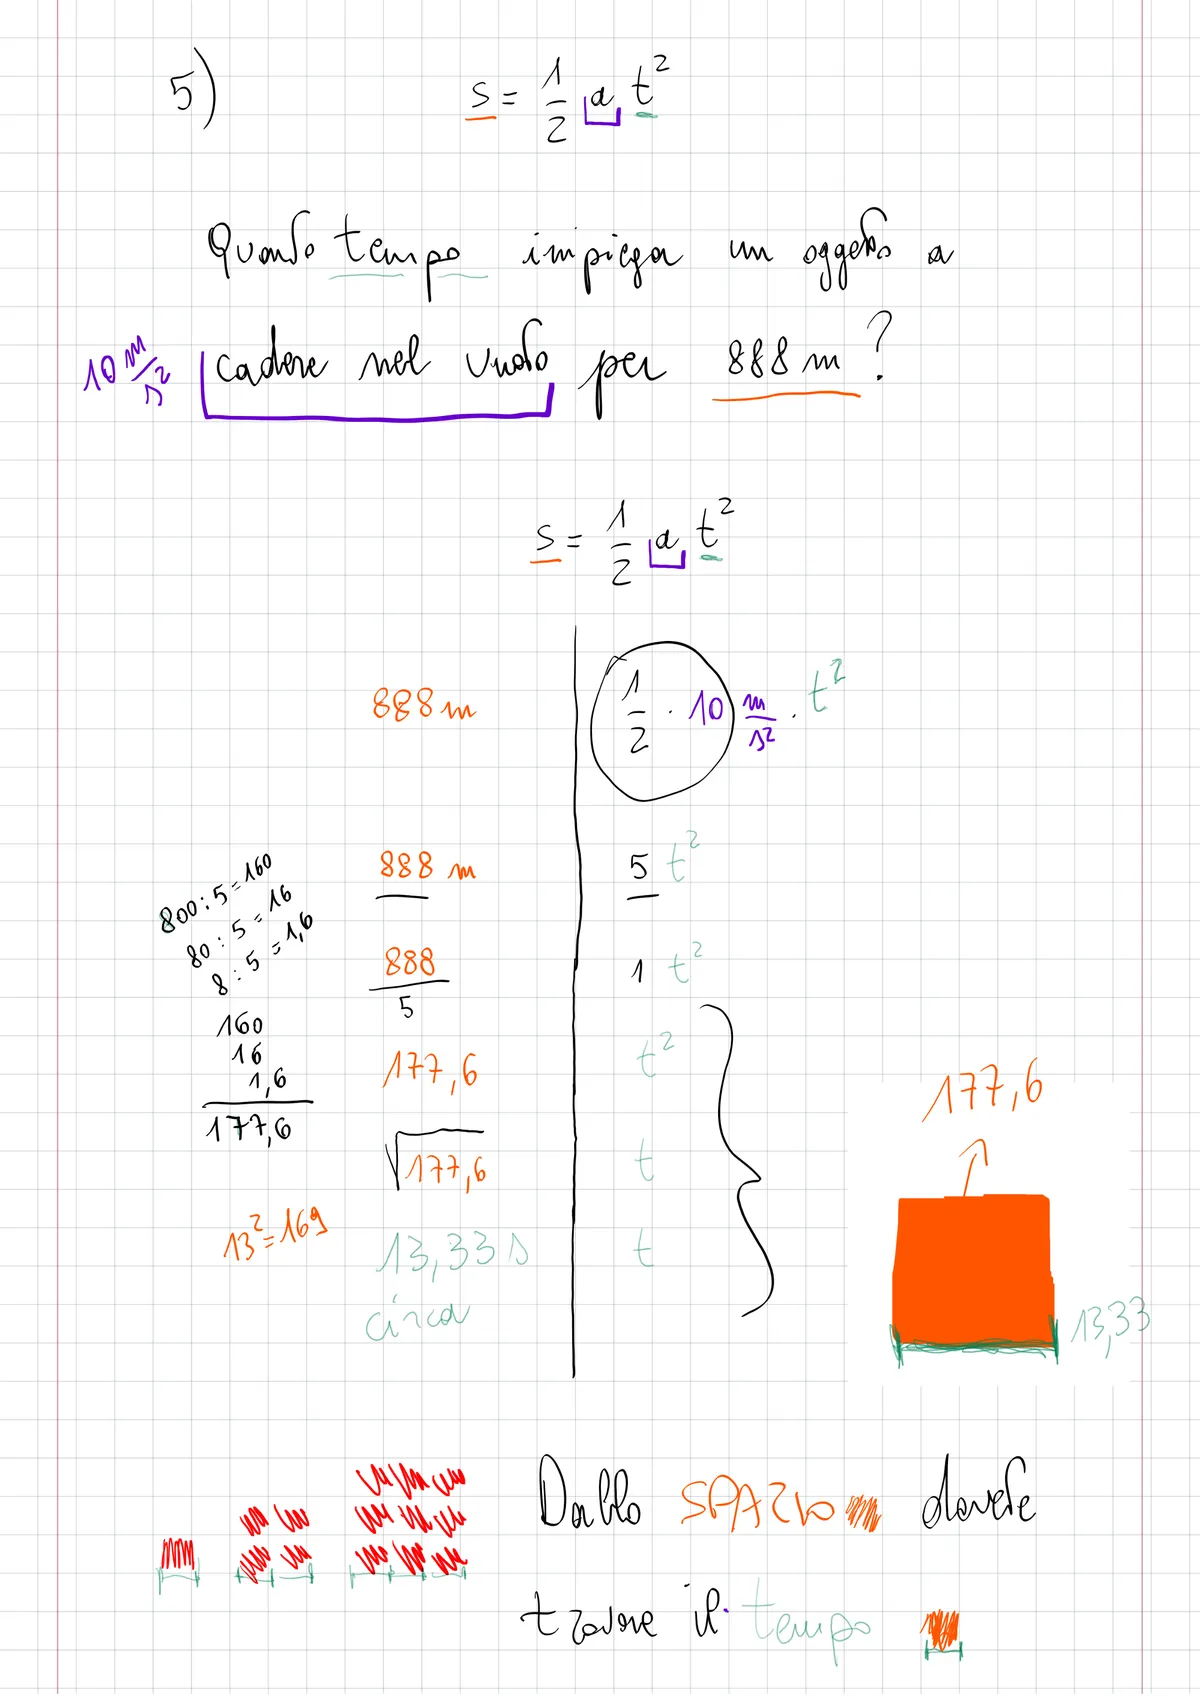 5)
s = 1/2 a t²
Quanto tempo impiega un oggetto a
10 m/s² cadere nel vuoto per 888 m?
s = 1/2 a t²
888 m | 1/2 · 10 m/s² · t²
888 m | 5 t²
800 : 5 = 160
80 : 5 = 16
8 : 5 = 1,6
888/5 | 1 t²
160
16
1,6
177,6
177,6 | t²
√177,6 | t
13² = 169
13,33 s | t
circa
177,6
13,33
Dallo SPAZIO dovete
trovare il tempo